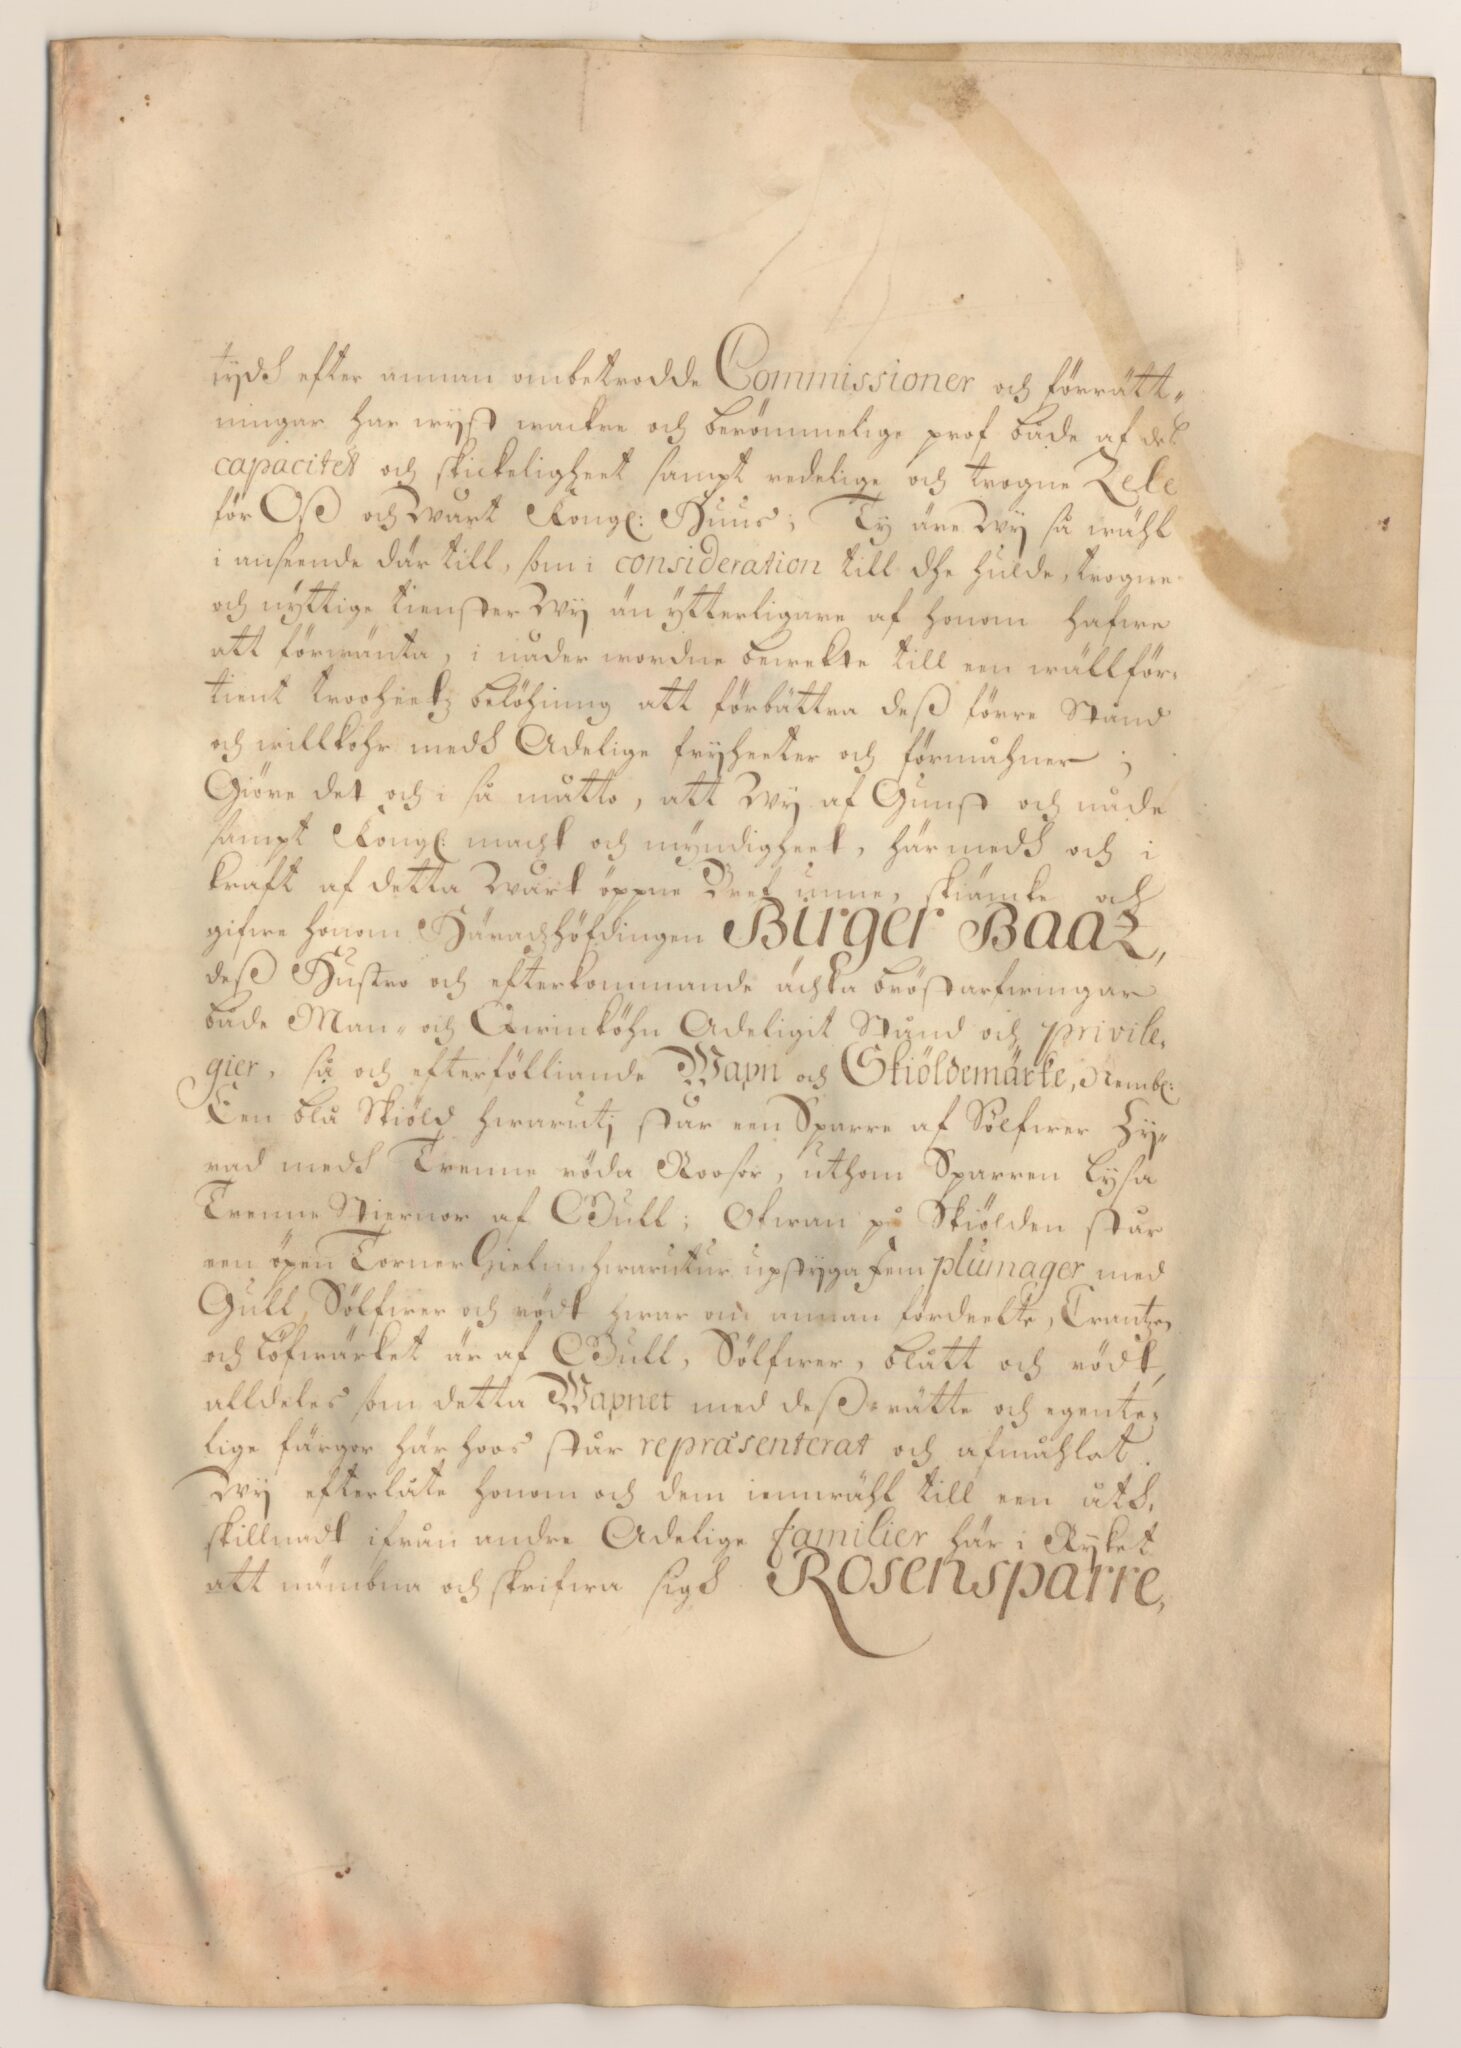 tydh efter annan ombetrodde Commissioner och förrätt-
ningar har wyst wackre och berömmelige prof både af des
capacitet och skickeligheet sampt redelige och trogne Zele
för Oß och Wårt Kongl: Huus; Ty äre Wy så wähl
i anseende där till, som i consideration till dhe hulde, trogne
och nyttige tienster Wij än ytterligare af honom hafwe
att förwänta, i nåder wordne bewekte till een wällför-
tient trooheetz belöhning att förbättra deß förre Stånd
och willkohr medh Adelige fryheeter och förmåhner;
Giöre det och i så matto, att Wij af Gunst och nåde
sampt Kongl: macht och myndigheet, härmedh och i
krafft af detta Wårt öppne Bref unne, skiäncke och
gifwe honom Häradzhöfdingen Birger Baaz,
deß Hustro och efterkommande ächta bröstarfwingar
både Man- och Qwinköhn Adeligit Stånd och privile-
gier, så och efterfölliande Wapn och Skiöldemärke, Nembl:
Een blå Skiöld hwarutj står een Sparre af Sölfwer Zij-
rad medh Trenne röda Roosor, uthom Sparren lysa
Trenne Stiernor af Gull; Ofwan på Skiölden står
een öpen Torner Hielm hwarutur upstyga fem plumager med
Gull, Sölfwer och rödt hwar om annan fördeelte, Crantzen
och Löfwärket är af Gull, Sölfwer, blått och rödt,
alldeles som detta Wapnet med deß rätte och egente-
lige färgor här hoos står repræsenterat och afmåhlat.
Wij efterlåte honom och dem iemwähl till een åth-
skillnadt ifrån andre Adelige familier här i Ryket
att nämbna och skrifwa sigh Rosensparre,